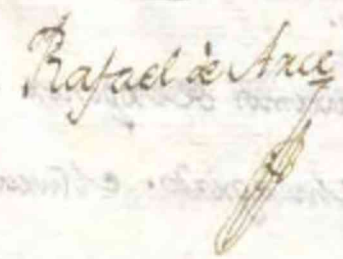 Rafael de Arce